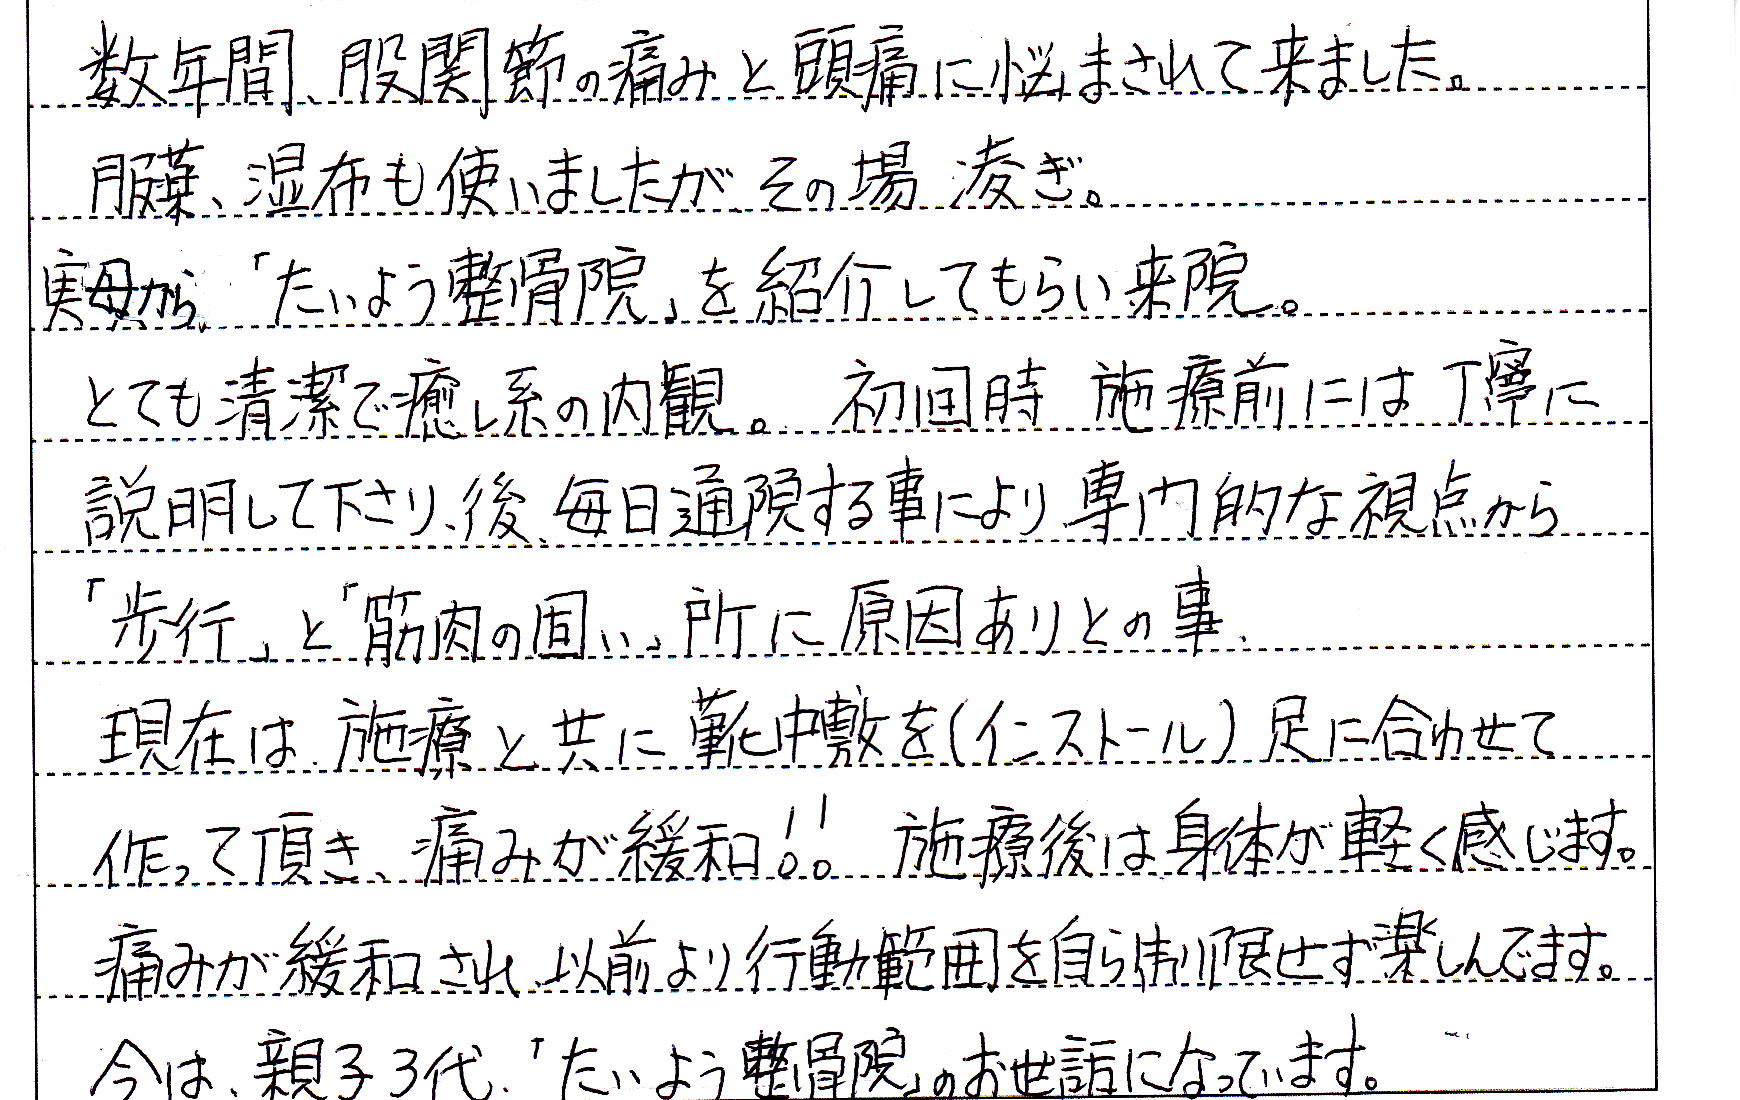 数年間、股関節の痛みと頭痛に悩まされて来ました。
服薬、湿布も使いましたがその場凌ぎ。
実母から、「たいよう整骨院」を紹介してもらい来院。
とても清潔で癒し系の内観。初回時 施療前には丁寧に
説明して下さり、後、毎日通院する事により、専門的な視点から
「歩行」と「筋肉の固い」所に原因ありとの事、
現在は、施療と共に靴中敷を(インストール)足に合わせて
作って頂き、痛みが緩和!! 施療後は身体が軽く感じます。
痛みが緩和され、以前より行動範囲を自ら制限せず楽しんでます。
今は、親子3代、「たいよう整骨院」のお世話になっています。